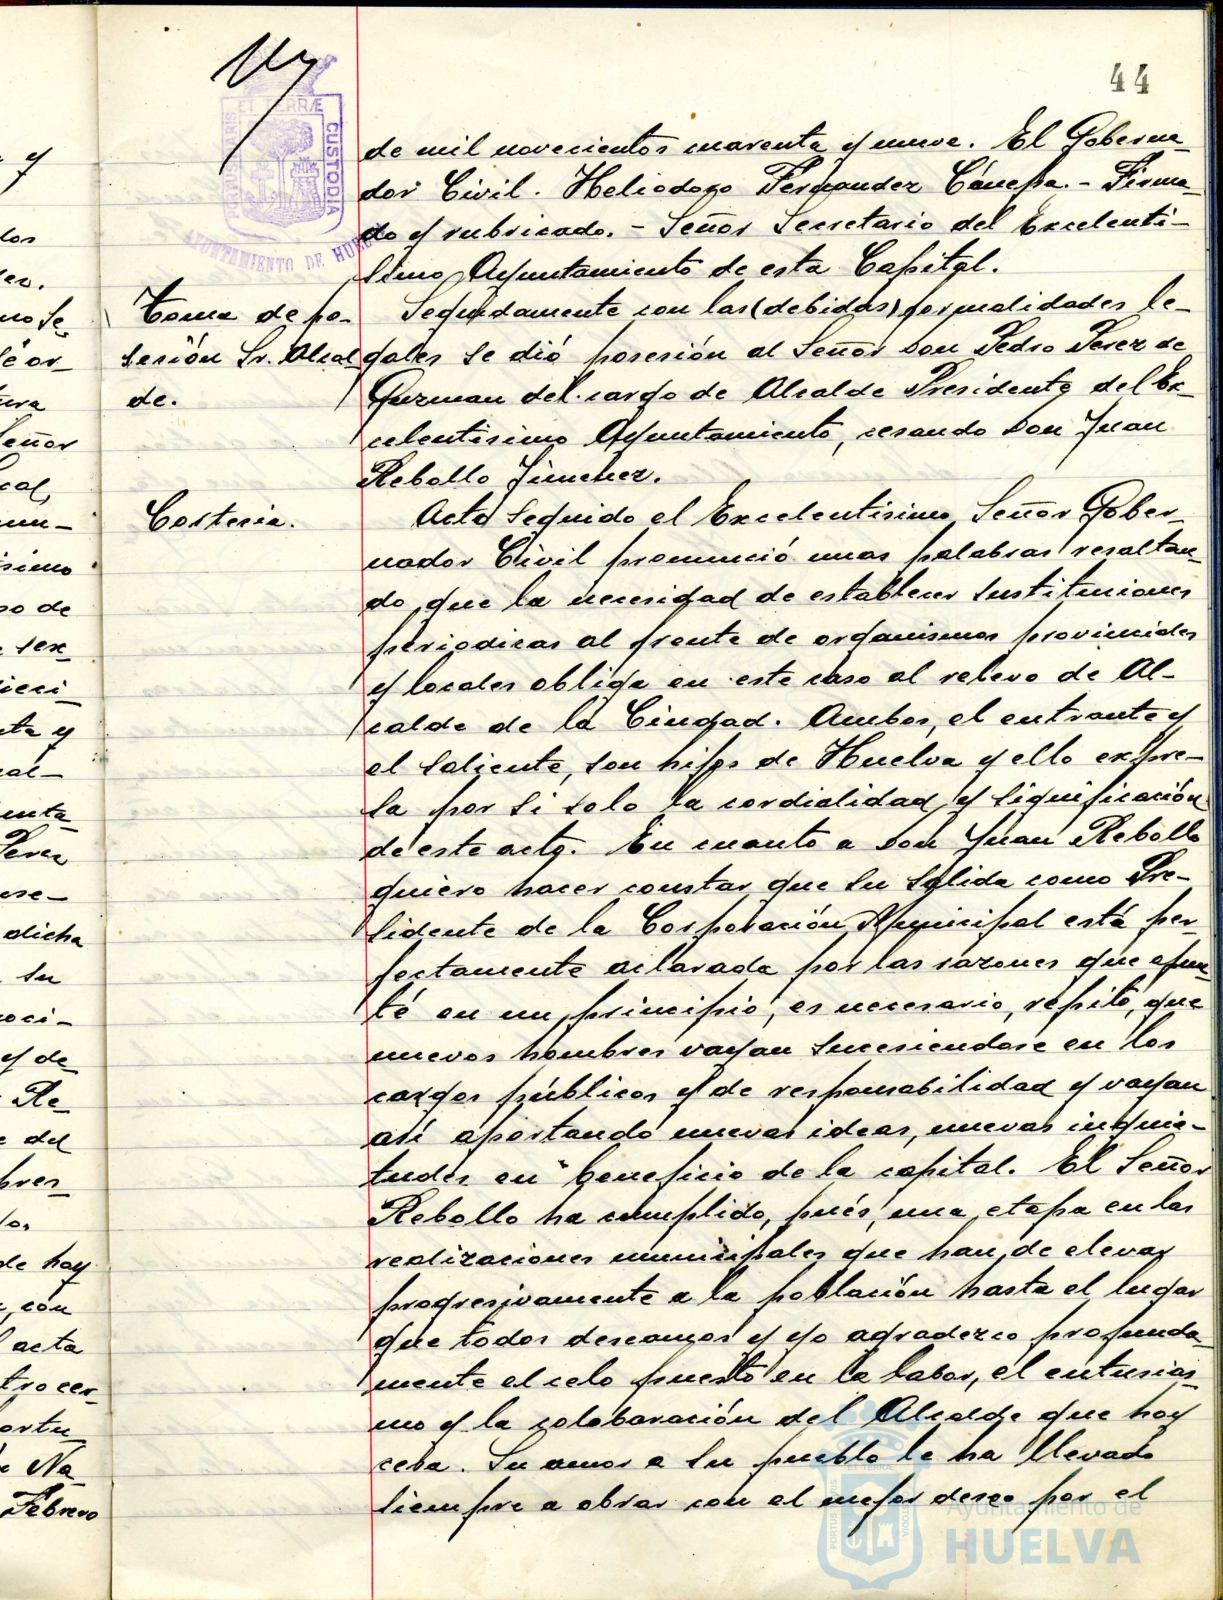 44
de mil novecientos cuarenta y nueve. El Goberna-
dor Civil. Heliodoro Fernandez Cánepa. - Firma-
do y rubricado. - Señor Secretario del Excelentí-
simo Ayuntamiento de esta Capital.
Toma de po-
sesión Sr. Alcal-
de.
Seguidamente con las (debidas) formalidades le-
gales se dió posesión al Señor Don Pedro Perez de
Guzman del cargo de Alcalde Presidente del Ex-
celentisimo Ayuntamiento, cesando Don Juan
Rebollo Jimenez.
Cortesia.
Acto seguido el Excelentisimo Señor Gober-
nador Civil pronunció unas palabras resaltan-
do que la necesidad de establecer sustituciones
periodicas al frente de organismos provinciales
y locales obliga en este caso al relevo de Al-
calde de la Ciudad. Ambos, el entrante y
el saliente, son hijos de Huelva y ello expre-
sa por si solo la cordialidad y significación
de este acto. En cuanto a Don Juan Rebollo
quiero hacer constar que su salida como Pre-
sidente de la Corporación Municipal está per-
fectamente aclarada por las razones que apun-
té en un principio; es necesario, repito, que
nuevos hombres vayan sucesiendose en los
cargos públicos y de responsabilidad y vayan
así aportando nuevas ideas, nuevas inquie-
tudes en beneficio de la capital. El Señor
Rebollo ha cumplido, pués, una etapa en las
realizaciones municipales que han de elevar
progresivamente a la población hasta el lugar
que todos deseamos y yo agradezco profunda-
mente el celo puesto en la labor, el entusias-
mo y la colaboración del Alcalde que hoy
cesa. Su amor a su pueblo le ha llevado
siempre a obrar con el mejor deseo por el
PORTUS MARIS ET TERRÆ CUSTODIA
AYUNTAMIENTO DE HUELVA
Ayuntamiento de
HUELVA